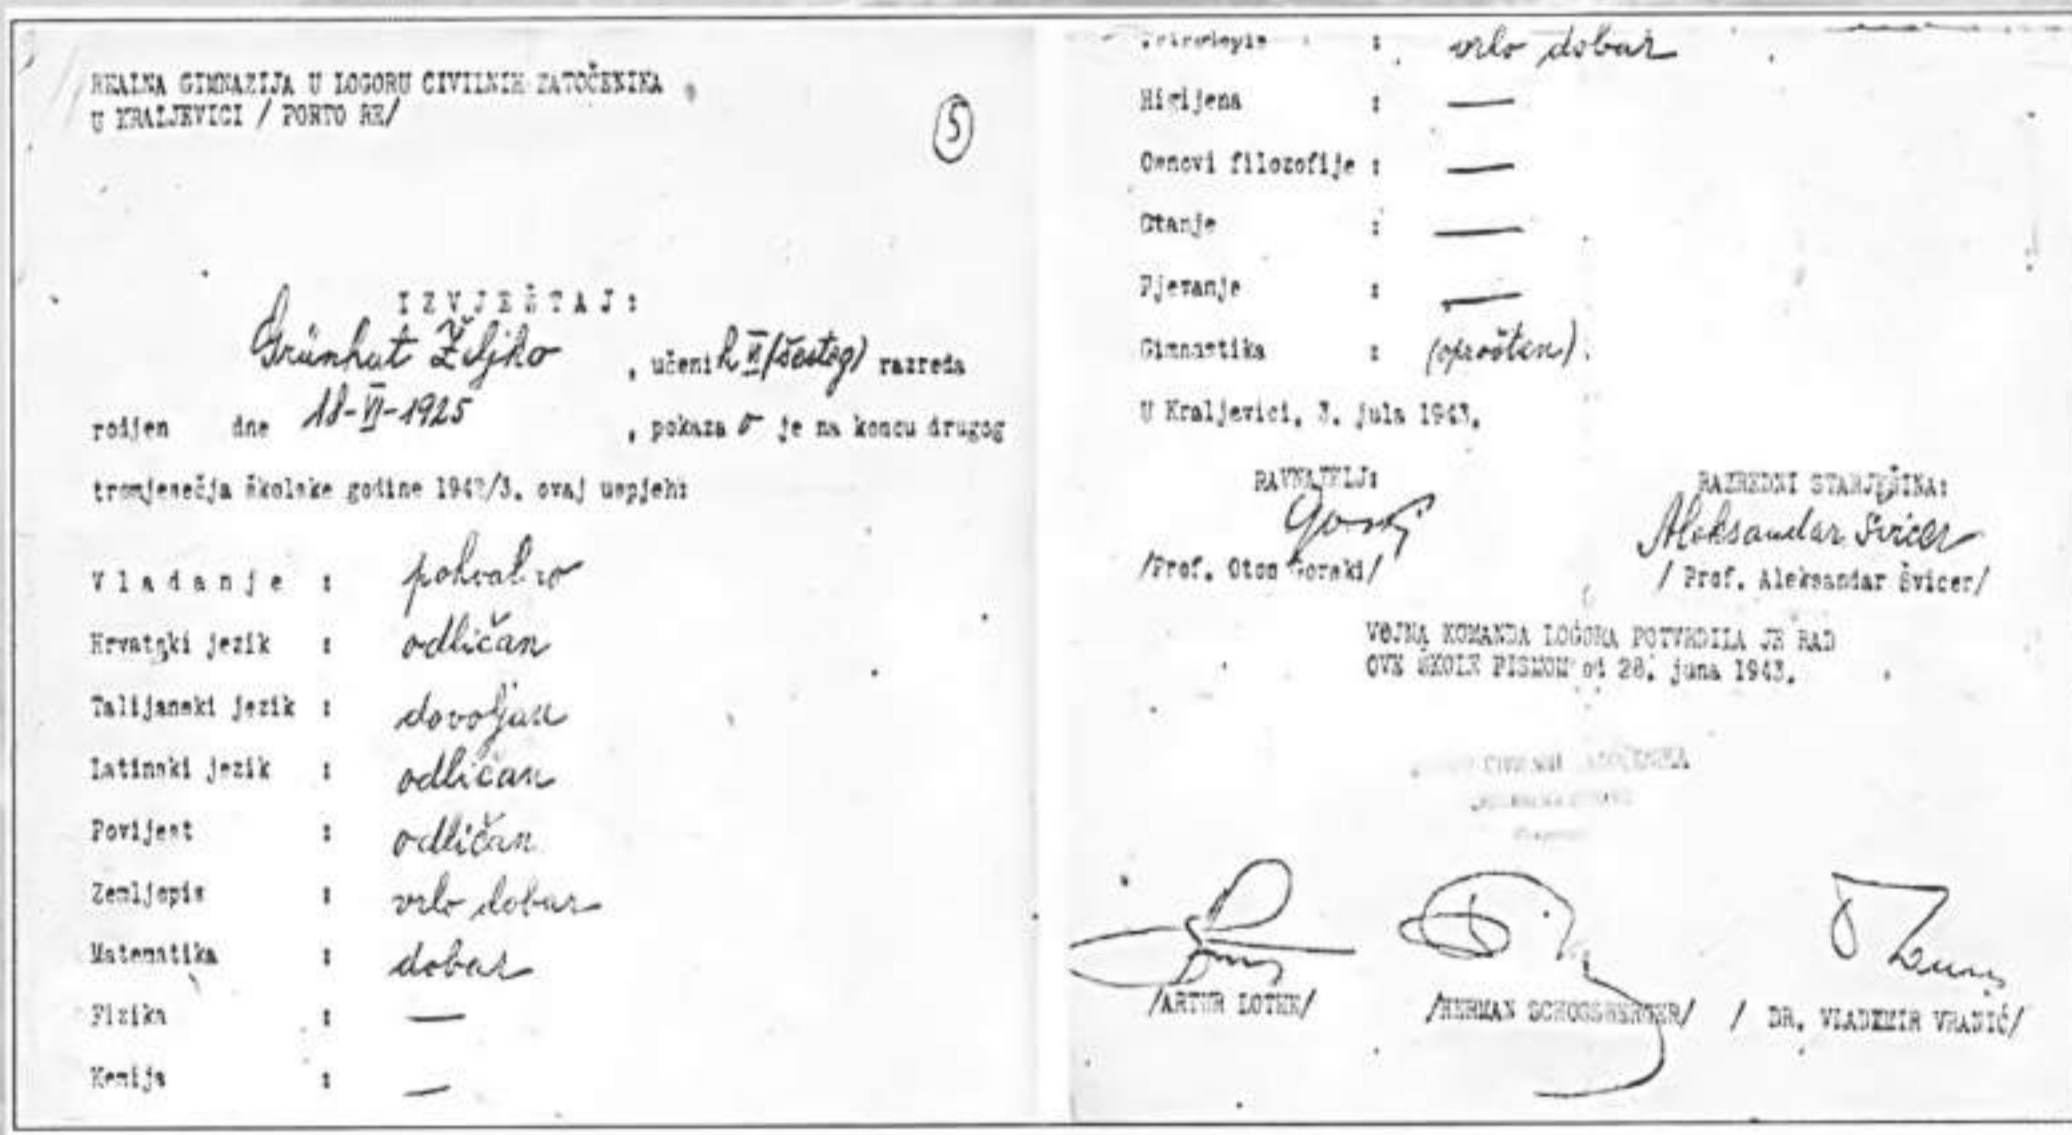 REALNA GIMNAZIJA U LOGORU CIVILNIH ZATOČENIKA
U KRALJEVICI / PORTO RE/
5
IZVJEŠTAJ:
Grünhut Željko , učenik VI (šestog) razreda
rodjen dne 18-VI-1925 , pokazao je na koncu drugog
tromjesečja školske godine 1942/3. ovaj uspjeh:
Vladanje : pohvalno
Hrvatski jezik : odličan
Talijanski jezik : dovoljan
Latinski jezik : odličan
Povijest : odličan
Zemljopis : vrlo dobar
Matematika : dobar
Fizika : —
Kemija : —
Prirodopis : vrlo dobar
Higijena : —
Osnovi filozofije : —
Crtanje : —
Pjevanje : —
Gimnastika : (oprošten).
U Kraljevici, 3. jula 1943.
RAVNATELJ: RAZREDNI STARJEŠINA:
Gorski Aleksandar Švicer
/Prof. Oton Gorski/ / Prof. Aleksandar Švicer/
VOJNA KOMANDA LOGORA POTVRDILA JE RAD
OVE ŠKOLE PISMOM od 28. juna 1943.
/ARTUR LOTHE/ /HERMAN SCHOGSBERGER/ / DR. VLADIMIR VRANIĆ/